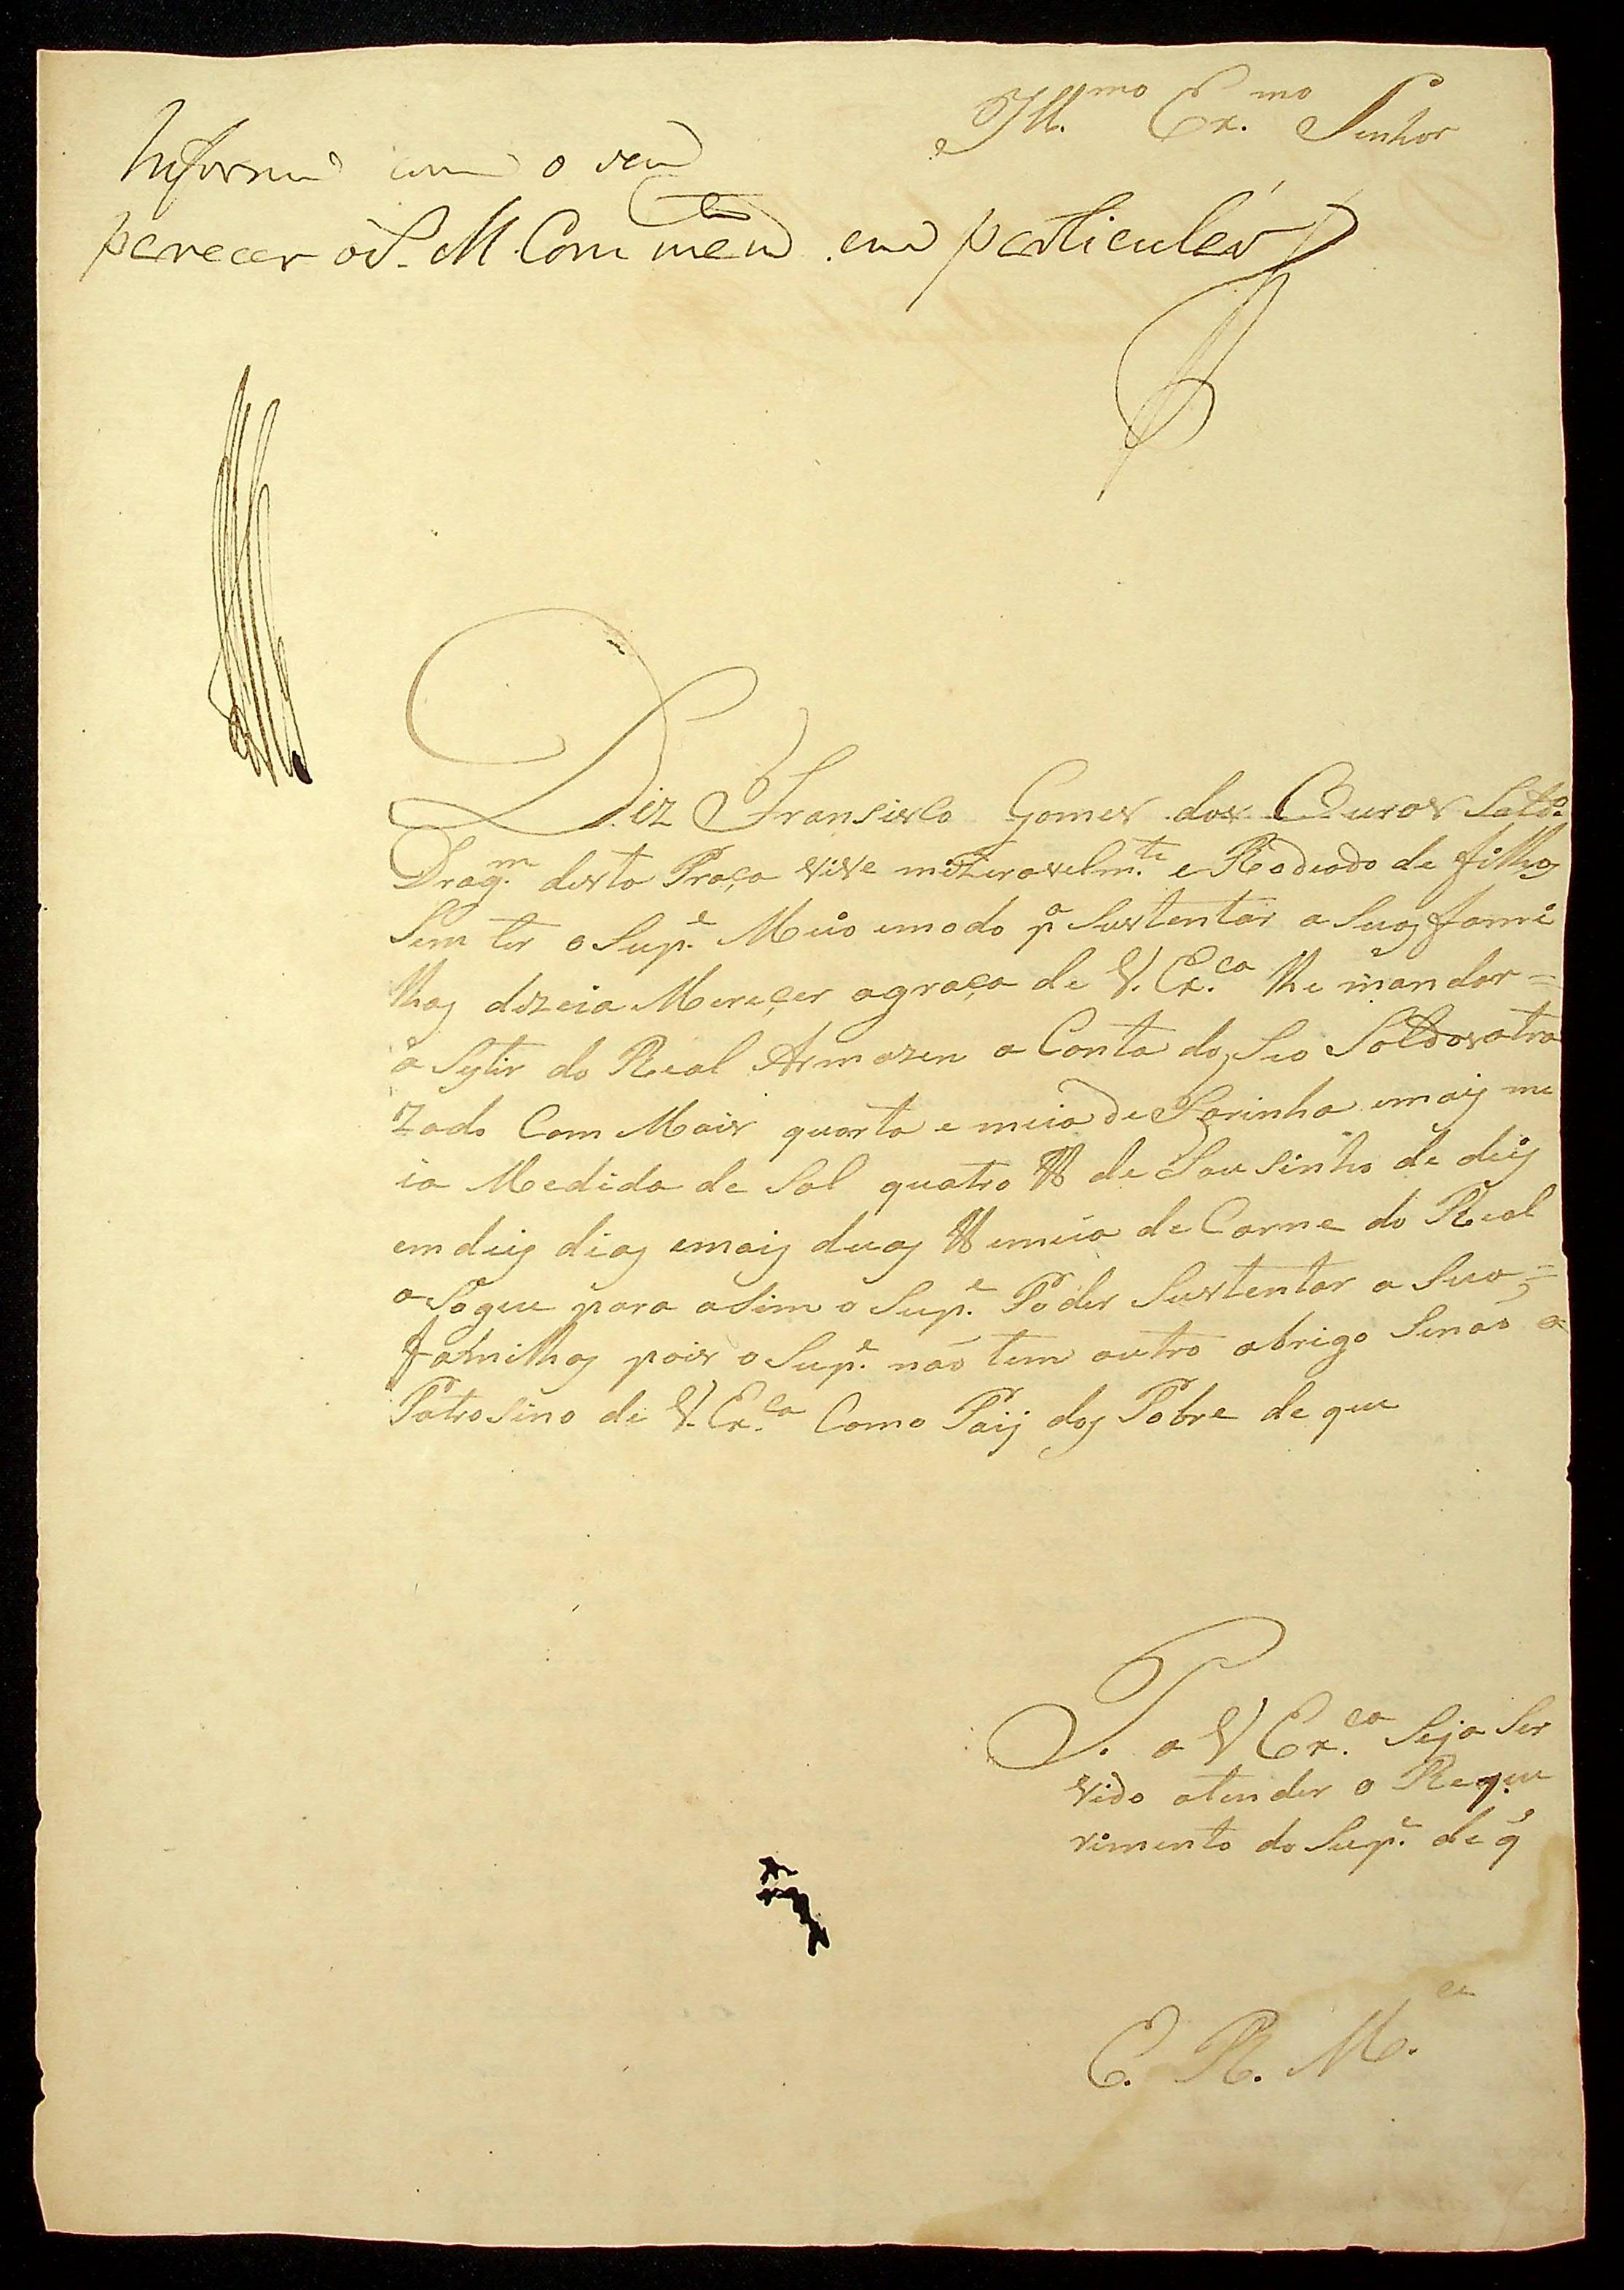 Ill.mo Ex.mo Senhor
Informe com o seu
parecer o S. M. Comm.te em particular
Diz Fransisco Gomes dos Ouros Sold.o
Drag.m desta Praça vive mizeravelm.te e Rodeado de filhos
Sem ter o Sup.e Meio emodo p.a Sustentar a Suas fami
lhas dizeia Mereçer agraça de V. Ex.ca lhe mandar =
a Sistir do Real Armazen a Conta dos Seo Soldos atra
zado Com Mais quarta e meia de Farinha emais me
ia Medida de Sal quatro lb de Tousinho de deis
em deis dias emais duas lb emeia de Carne do Real
a Sogue para asim o Sup.e Poder Sustentar a Sua =
familhas pois o Sup.e não tem outro abrigo Senão o
Patrosino de V. Ex.ca Como Paij dos Pobre de que
P. a V Ex.ca Seja Ser
vido atender o Reque
rimento do Sup.e de q
E. R. M.ce